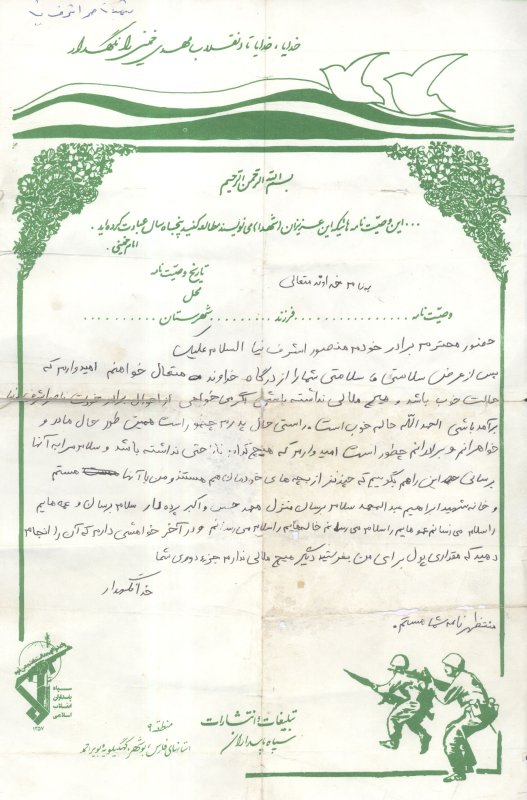 شهید ناصر اشرف نیا
خدایا، خدایا تا انقلاب مهدی خمینی را نگهدار
بسم الله الرحمن الرحیم
... این وصیّت نامه هائیکه این عزیزان (شهدا) می نویسند مطالعه کنید پنجاه سال عبادت کرده اید.
امام خمینی.
تاریخ وصیّت نامه
محل
به نام خداوند متعالی
وصیّت نامه ................ فرزند ......... شهرستان ..........
حضور محترم برادر خودم منصور اشرف نیا السلام علیک
پس از عرض سلامتی و سلامتی شما را از درگاه خداوند متعال خواهانم امیدوارم که
حالت خوب باشد و هیچ ملالی نداشته باشی اگر می خواهی از احوال برادر خودت ناصر اشرف نیا
برآمد باشی الحمدالله حالم خوب است راستی حال پدرم چطور است همین طور حال مادر و
خواهرانم و برادرانم چطور است امیدوارم که هیچ ناراحتی نداشته باشد و سلام مرا به آنها
برسانی این را هم بگویم که چند نفر از بچه های خودمان هم هستند و من با آنها هستم
و خانه شهید ابراهیم عبدالمحمد سلام برسان منزل محمد حسن و اکبر سلام برسان و عمه هایم
را سلام می رسانم عموهایم را سلام می رسانم خاله هایم را سلام می رسانم و در آخر خواهشی دارم که آن را انجام
دهید که مقداری پول برای من بفرستید دیگر هیچ ملالی ندارم جزء دوری شما
خدانگهدار
منتظر نامه شما هستم.
سپاه
پاسداران
انقلاب
اسلامی
۱۳۵۷
تبلیغات و انتشارات
سپاه پاسداران
منطقه ۹
استانهای فارس، بوشهر، کهگیلویه بویراحمد